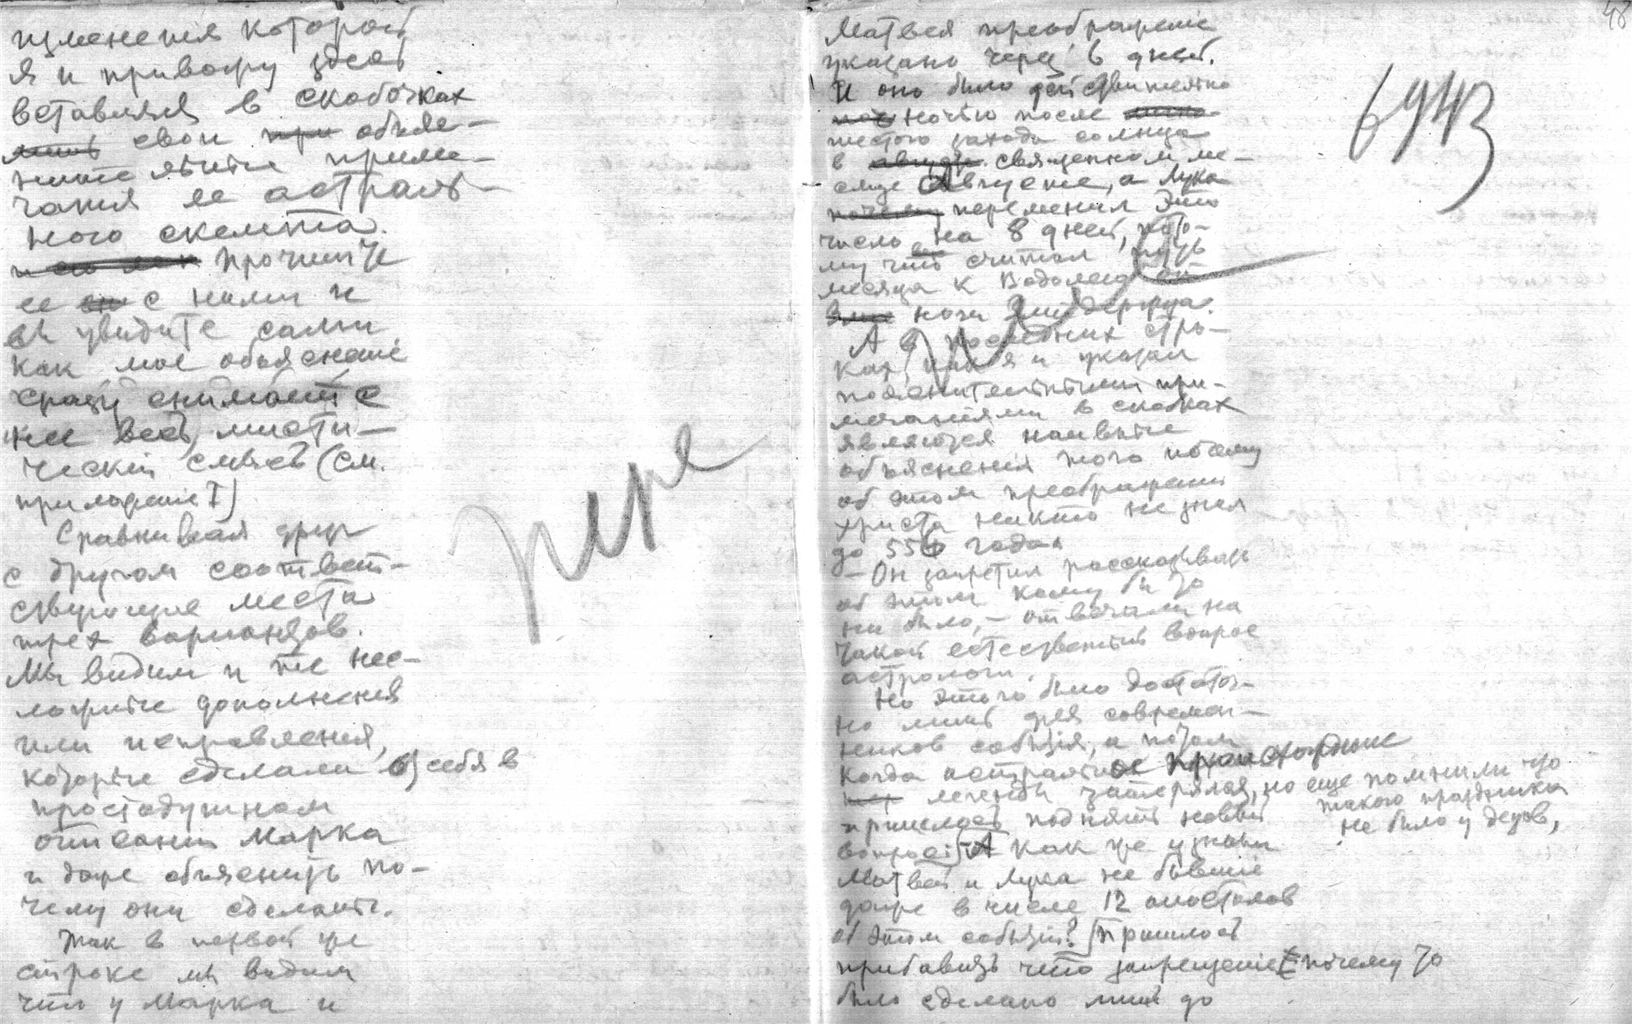 изменения которой
я и привожу здесь
вставляя в скобочках
лишь свои при объяс-
нительные приме-
чания ее астраль-
ного скелета.
Прочтите
ее с ними и
вы увидите сами
как мое объяснение
сразу снимает с
нее весь мисти-
ческий смысл (см.
приложение I)
Сравнивая друг
с другом соответ-
ствующие места
трех вариантов.
Мы видим и те нес-
ложные дополнения
или исправления,
которые сделали себя в
простодушном
описании Марка
и даже объяснить по-
чему они сделаны.
Так в первой же
строке мы видим
что у Марка и
48
Матвея преображение
указано через 6 дней.
И оно было действительно
ночью после
шестого захода солнца
в священном ме-
сяце Августе, а Лука
переменил это
число на 8 дней, пото-
му что считал путь
месяца к Водолею
ночи
А в последних стро-
ках, как я и указал
пояснительными при-
мечаниями в скобках
являются наивные
объяснения того почему
об этом преображении
Христа никто не знал
до 556 года.
— Он запретил рассказывать
об этом кому бы то
ни было, — отвечали на
такой естественный вопрос
астрологи.
Но этого было достаточ-
но лишь для современ-
ников события, а потом
когда астральное происхождение
легенды затерялось, но еще помнили что
такого праздника
не было у дедов,
пришлось поднять новый
вопрос: А как же узнали
Матвей и Лука не бывшие
даже в числе 12 апостолов
об этом событии? Пришлось
прибавить что запрещение почему то
было сделано лишь до